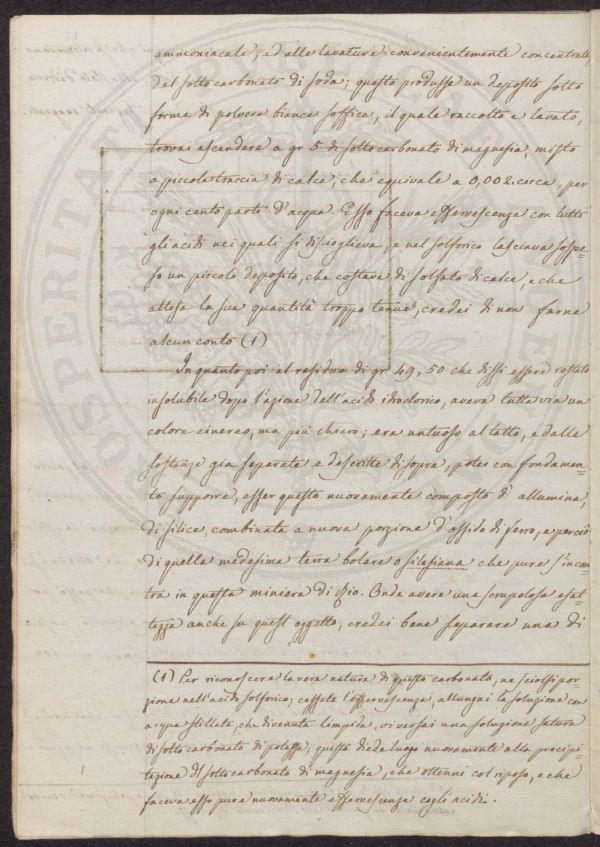 ammoniacale, ed alle lavature convenientemente concentrate
del sotto carbonato di soda; questo produsse un deposito sotto
forma di polvere bianca soffice, il quale raccolto e lavato,
trovai ascendere a gr 5 di sotto carbonato di magnesia, misto
a piccola traccia di calce, che equivale a 0,002. circa, per
ogni cento parti d'acqua. Esso faceva effervescenza con tutti
gli acidi nei quali si discioglieva, e nel solforico lasciava sospe=
so un piccolo deposito, che costava di solfato di calce, e che
attesa la sua quantità troppo tenue, credei di non farne
alcun conto (1)
In quanto poi al residuo di gr 49, 50 che dissi essere restato
insolubile dopo l'azione dell'acido idroclorico, aveva tutta via un
colore cinereo, ma più chiaro; era untuoso al tatto, e dalle
sostanze gia separate e descritte di sopra, potei con fondamen=
to supporre, esser questo nuovamente composto d'allumina,
di silice, combinata a nuova porzione d'ossido di ferro, e perciò
di quella medesima terra bolare o silesiana che pure s'incon=
tra in questa miniera di Zio. Onde avere una scrupolosa esat=
tezza anche su quest oggetto, credei bene separare una di
(1) Per riconoscere la vera natura di questo carbonato, ne sciolsi por=
zione nell'acido solforico; cessata l'effervescenza, allungai la soluzione con
acqua stillata, che divenuta limpida, vi versai una soluzione satura
di sotto carbonato di potassa; questa diede luogo nuovamente alla precipi=
tazione del sotto carbonato di magnesia, che ottenni col riposo, e che
faceva esso pure nuovamente effervescenza cogli acidi.
PROSPERITATI